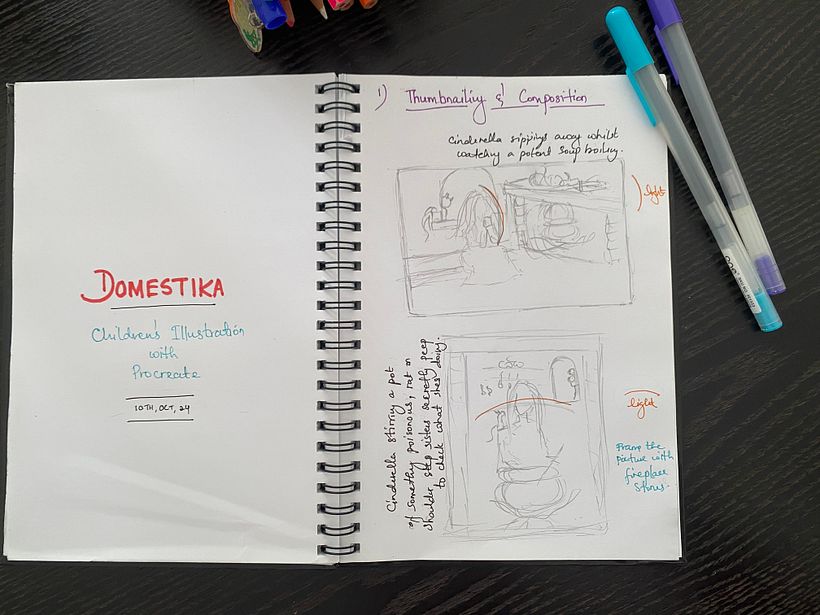 DOMESTIKA
Children's Illustration
with
Procreate
10TH, OCT, 24
1) Thumbnailiy & Composition
Cinderella sippings away whilst
watchiy a potent soup boiliy.
light
Cinderella stirriy a pot
of somethy poisonous, rat on
shoulder, step sisters secretly peep
to check what she's doing.
light
Frame the
picture with
fireplace